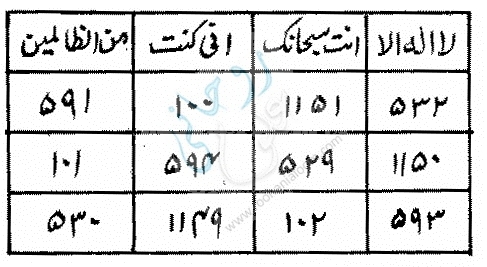 لا الہ الا انت سبحانک انی کنت من الظالمین
۵۳۲ ۱۱۵۱ ۱۰۰ ۵۹۱
۱۱۵۰ ۵۲۹ ۵۹۴ ۱۰۱
۵۹۳ ۱۰۲ ۱۱۴۹ ۵۳۰